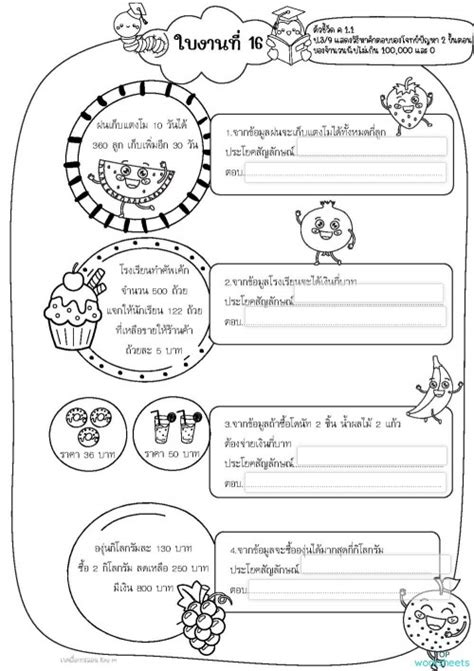 ใบงานที่ 16
ตัวชี้วัด ค 1.1
ป.3/9 แสดงวิธีหาคำตอบของโจทย์ปัญหา 2 ขั้นตอน
ของจำนวนนับไม่เกิน 100,000 และ 0
ฝนเก็บแตงโม 10 วันได้
360 ลูก เก็บเพิ่มอีก 30 วัน
1.จากข้อมูลฝนจะเก็บแตงโมได้ทั้งหมดกี่ลูก
ประโยคสัญลักษณ์
ตอบ
โรงเรียนทำคัพเค้ก
จำนวน 500 ถ้วย
แจกให้นักเรียน 122 ถ้วย
ที่เหลือขายให้ร้านค้า
ถ้วยละ 5 บาท
2.จากข้อมูลโรงเรียนจะได้เงินกี่บาท
ประโยคสัญลักษณ์
ตอบ
ราคา 36 บาท
ราคา 50 บาท
3.จากข้อมูลถ้าซื้อโดนัท 2 ชิ้น น้ำผลไม้ 2 แก้ว
ต้องจ่ายเงินกี่บาท
ประโยคสัญลักษณ์
ตอบ
องุ่นกิโลกรัมละ 130 บาท
ซื้อ 2 กิโลกรัม ลดเหลือ 250 บาท
มีเงิน 800 บาท
4.จากข้อมูลจะซื้อองุ่นได้มากสุดกี่กิโลกรัม
ประโยคสัญลักษณ์
ตอบ
TOP
worksheets